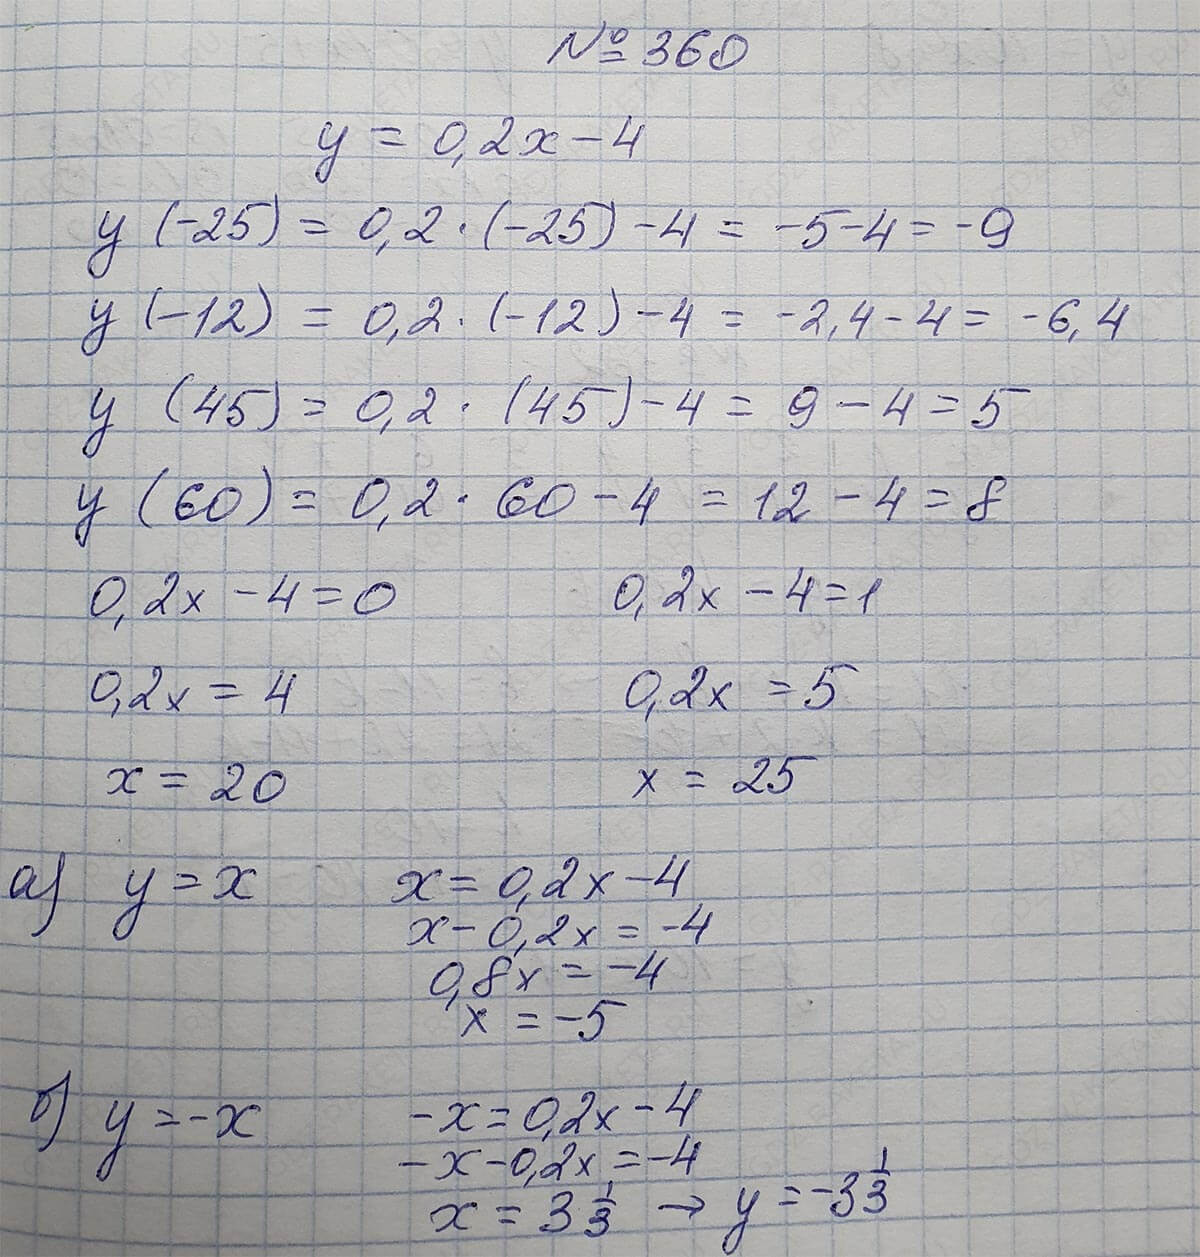 № 360
y = 0,2x - 4
y (-25) = 0,2 · (-25) - 4 = -5 - 4 = -9
y (-12) = 0,2 · (-12) - 4 = -2,4 - 4 = -6,4
y (45) = 0,2 · (45) - 4 = 9 - 4 = 5
y (60) = 0,2 · 60 - 4 = 12 - 4 = 8
0,2x - 4 = 0 0,2x - 4 = 1
0,2x = 4 0,2x = 5
x = 20 x = 25
а) y = x x = 0,2x - 4
x - 0,2x = -4
0,8x = -4
x = -5
б) y = -x -x = 0,2x - 4
-x - 0,2x = -4
x = 3 1/3 → y = -3 1/3